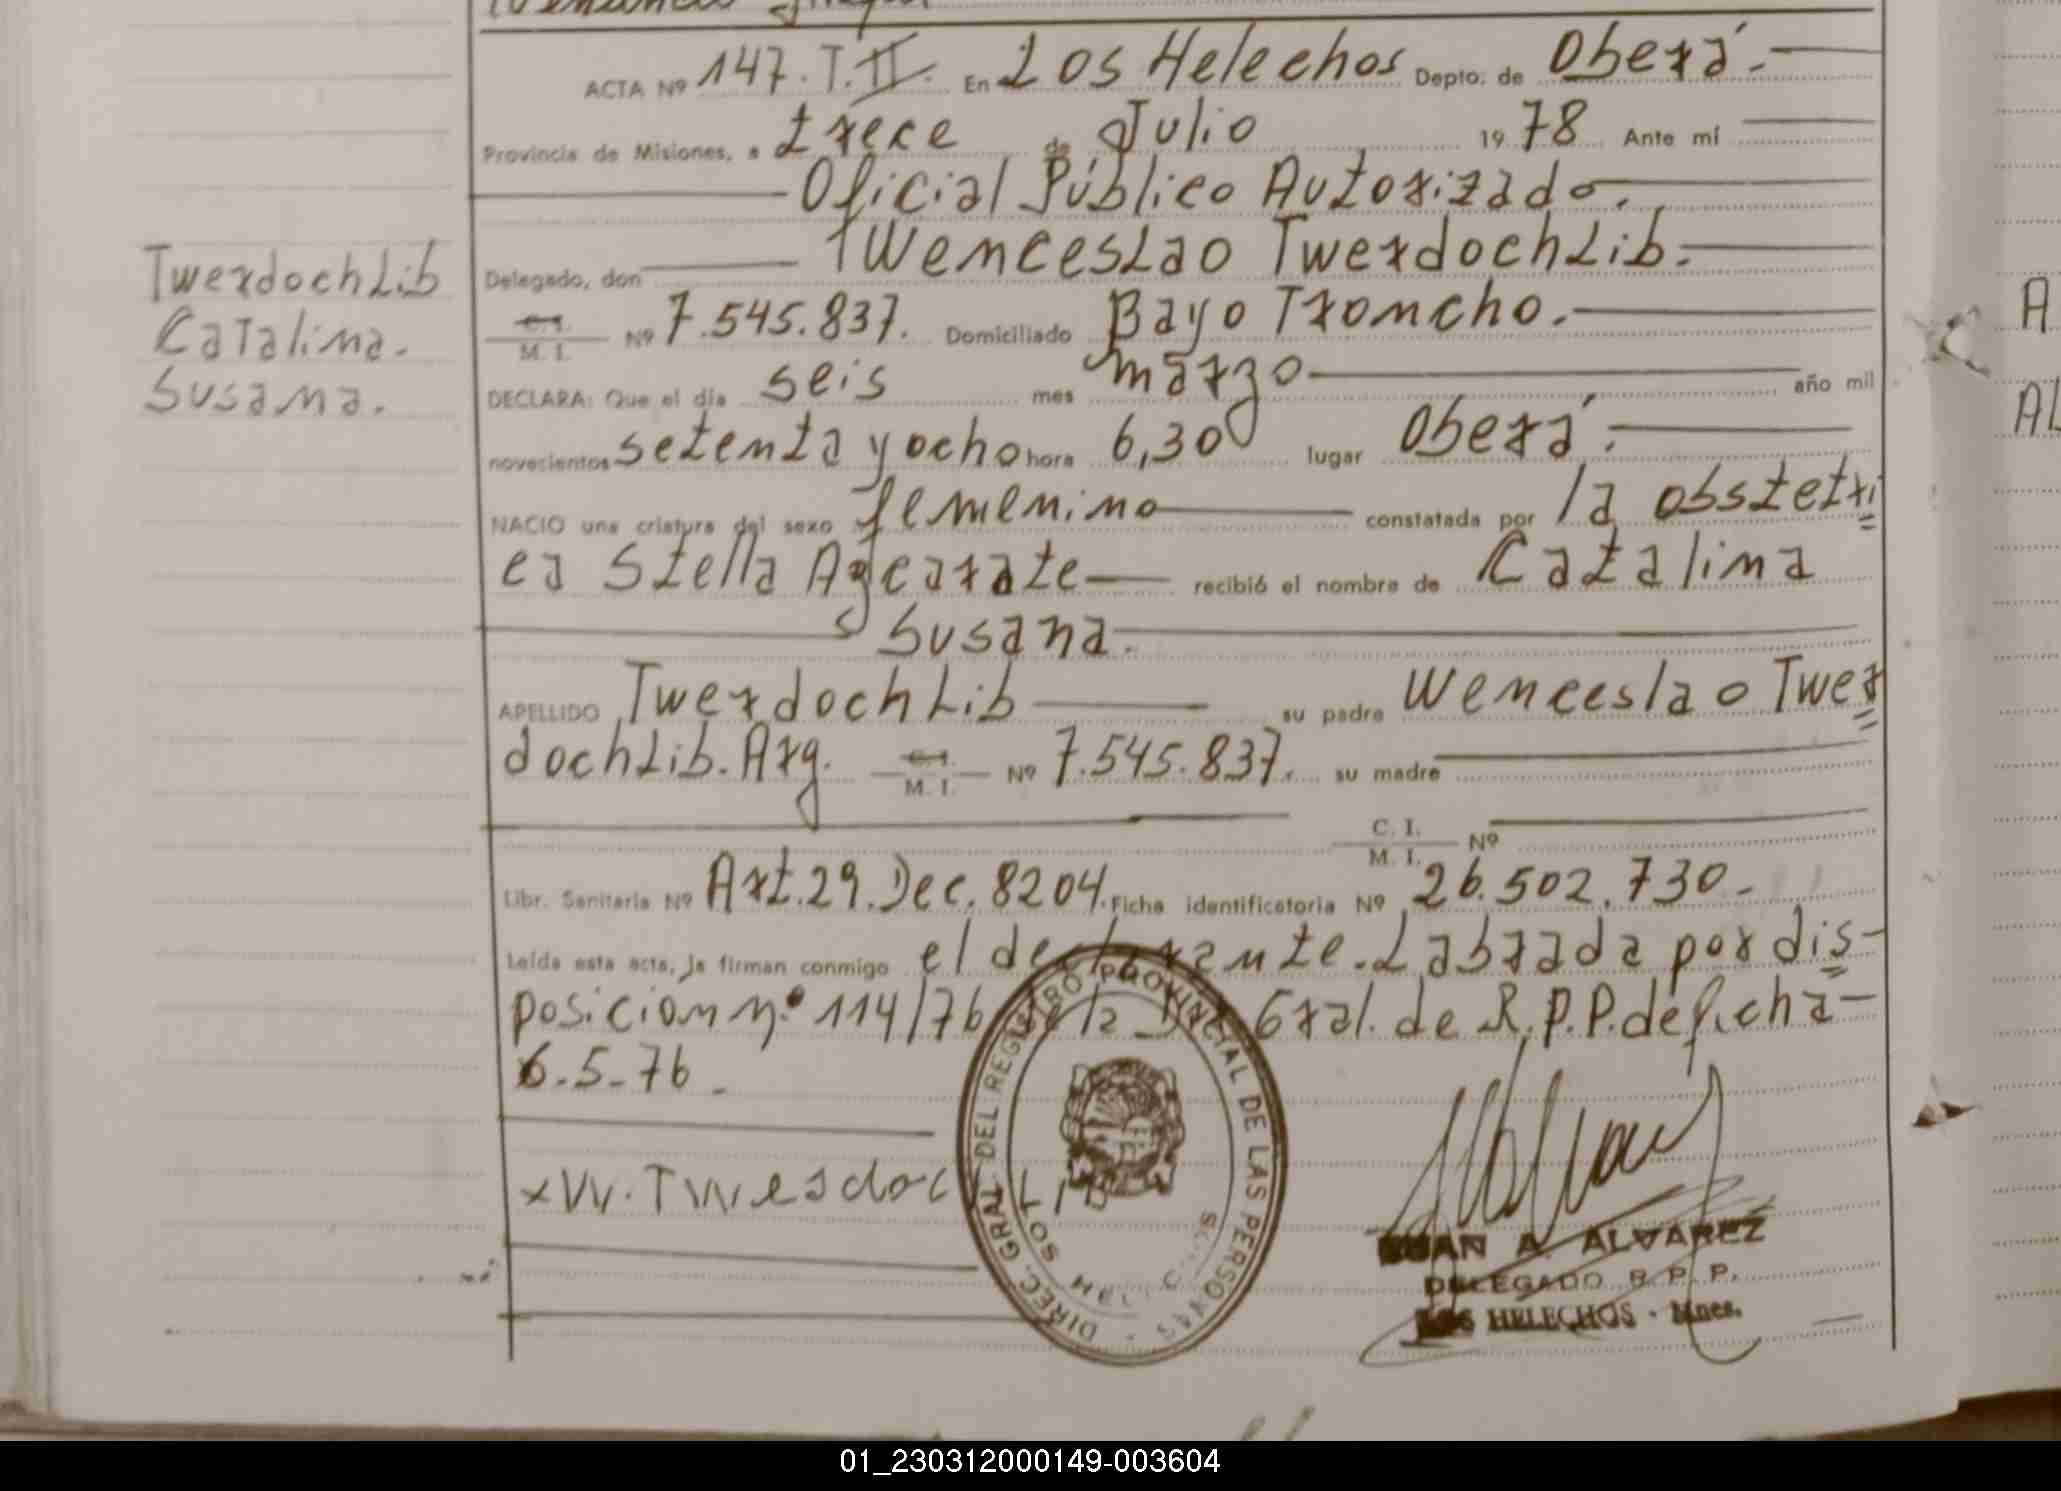 ACTA Nº 147. T. II. En Los Helechos Depto. de Oberá.
Provincia de Misiones, a trece de Julio 1978 Ante mí
Oficial Público Autorizado.
Delegado, don Wenceslao TwerdochLib.
Twerdochlib
Catalina.
Susana.
C. I.
M. I. Nº 7.545.837. Domiciliado Bayo Troncho.
DECLARA: Que el día seis mes marzo año mil
novecientos setenta y ocho hora 6,30 lugar Oberá.
NACIO una criatura del sexo femenino constatada por la obstetri
ca Stella Agcarate recibió el nombre de Catalina
Susana.
APELLIDO TwerdochLib su padre Wenceslao Twer
dochLib. Arg. C. I. M. I. Nº 7.545.837. su madre
C. I.
M. I. Nº
Libr. Sanitaria Nº Art. 29. Dec. 8204. Ficha identificatoria Nº 26.502.730-
Leída esta acta, la firman conmigo el declarante. Labrada por dis-
posición n.º 114/76 de la Dir. Gral. de R.P.P. de ficha
6-5-76-
x W. Twesdoc
DIREC. GRAL. DEL REGISTRO PROVINCIAL DE LAS PERSONAS
JUAN A. ALVAREZ
DELEGADO R. P. P.
LOS HELECHOS - Mnes.
A
AL
01_230312000149-003604